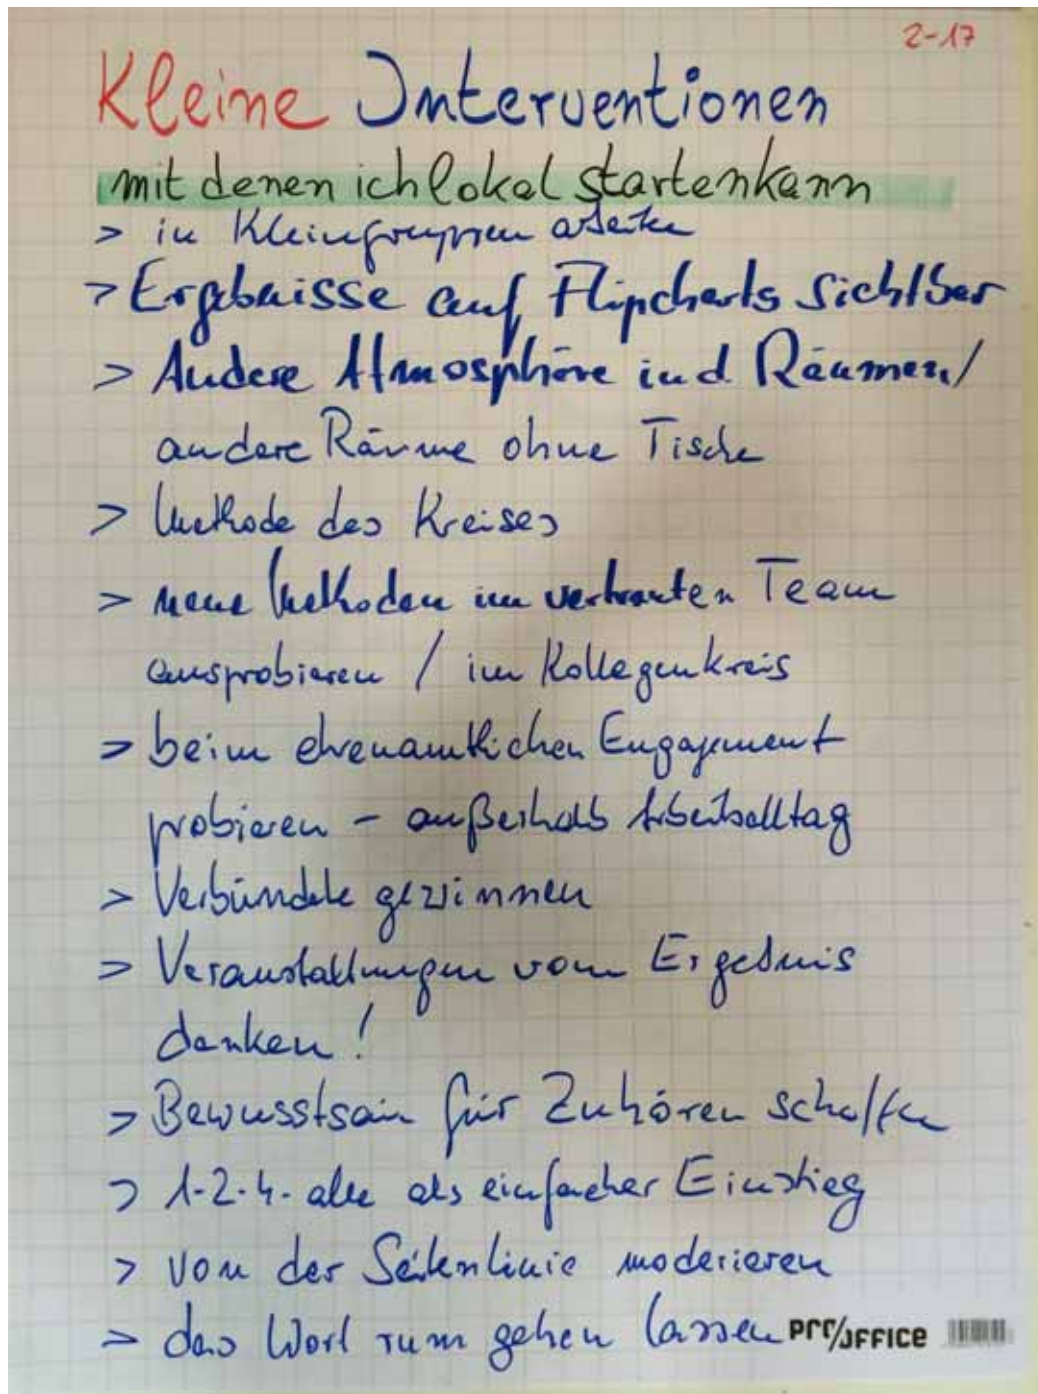 2-17
Kleine Interventionen
mit denen ich lokal starten kann
> in Kleingruppen arbeiten
> Ergebnisse auf Flipcharts sichtbar
> Andere Atmosphäre in d. Räumen/
andere Räume ohne Tische
> Methode des Kreises
> neue Methoden im vertrauten Team
ausprobieren / im Kollegenkreis
> beim ehrenamtlichen Engagement
probieren - außerhalb Arbeitsalltag
> Verbündete gewinnen
> Veranstaltungen vom Ergebnis
denken!
> Bewusstsein für Zuhören schaffen
> 1-2-4-alle als einfacher Einstieg
> von der Seitenlinie moderieren
> das Wort rum gehen lassen PRO/OFFICE